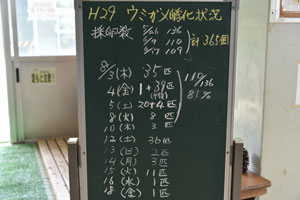 H29 ウミガメ孵化状況
採卵数 5/26 136
6/9 110 計365個
6/17 109
8/3(木) 35匹
4(金) 1+39匹 119/136
5(土) 20+4匹 81%
8(火) 8匹
10(木) 3匹
12(土) 36匹
13(日) 2匹
14(月) 3匹
15(火) 11匹
16(水) 1匹
18(金) 1匹